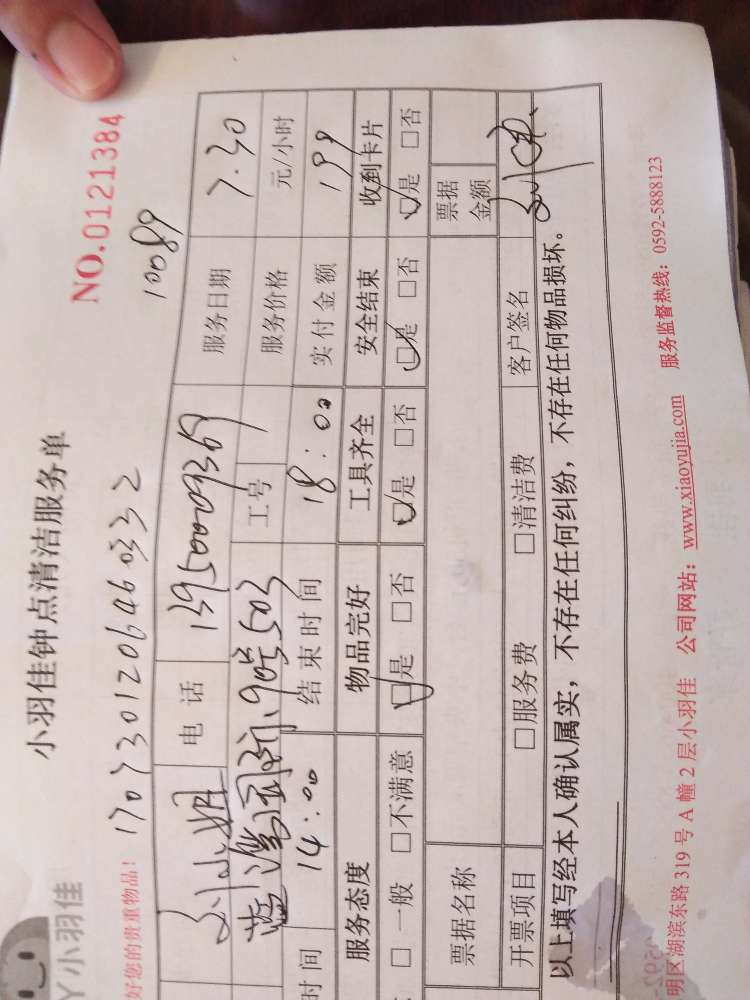 小羽佳钟点清洁服务单
NO.0121384
Y小羽佳
好您的贵重物品！ 1707301206460332 10089
刘小姐 电话 13950009369 服务日期 7.30
蓝湾国际90号503 工号 服务价格 元/小时
时间 14:00 结束时间 18:00 实付金额 199
服务态度 物品完好 工具齐全 安全结束 收到卡片
□一般 □不满意 □是 □否 □是 □否 □是 □否 □是 □否
票据名称 票据金额
开票项目 □服务费 □清洁费 客户签名
以上填写经本人确认属实，不存在任何纠纷，不存在任何物品损坏。
明区湖滨东路319号A幢2层小羽佳 公司网站：www.xiaoyujia.com 服务监督热线：0592-5888123